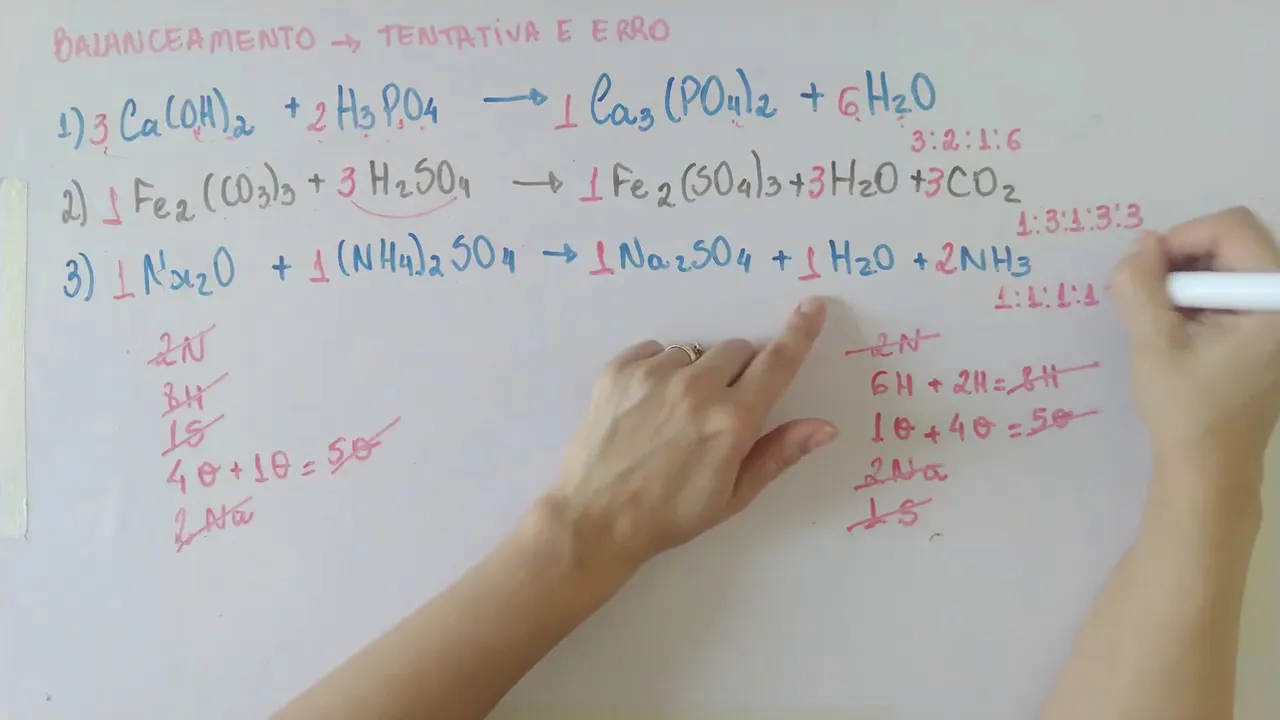 BALANCEAMENTO → TENTATIVA E ERRO
1) 3 Ca(OH)2 + 2 H3PO4 → 1 Ca3(PO4)2 + 6 H2O
3:2:1:6
2) 1 Fe2(CO3)3 + 3 H2SO4 → 1 Fe2(SO4)3 + 3 H2O + 3 CO2
1:3:1:3:3
3) 1 Na2O + 1 (NH4)2SO4 → 1 Na2SO4 + 1 H2O + 2 NH3
1:1:1:1
2N
8H
1S
4O + 1O = 5O
2Na
2N
6H + 2H = 8H
1O + 4O = 5O
2Na
1S